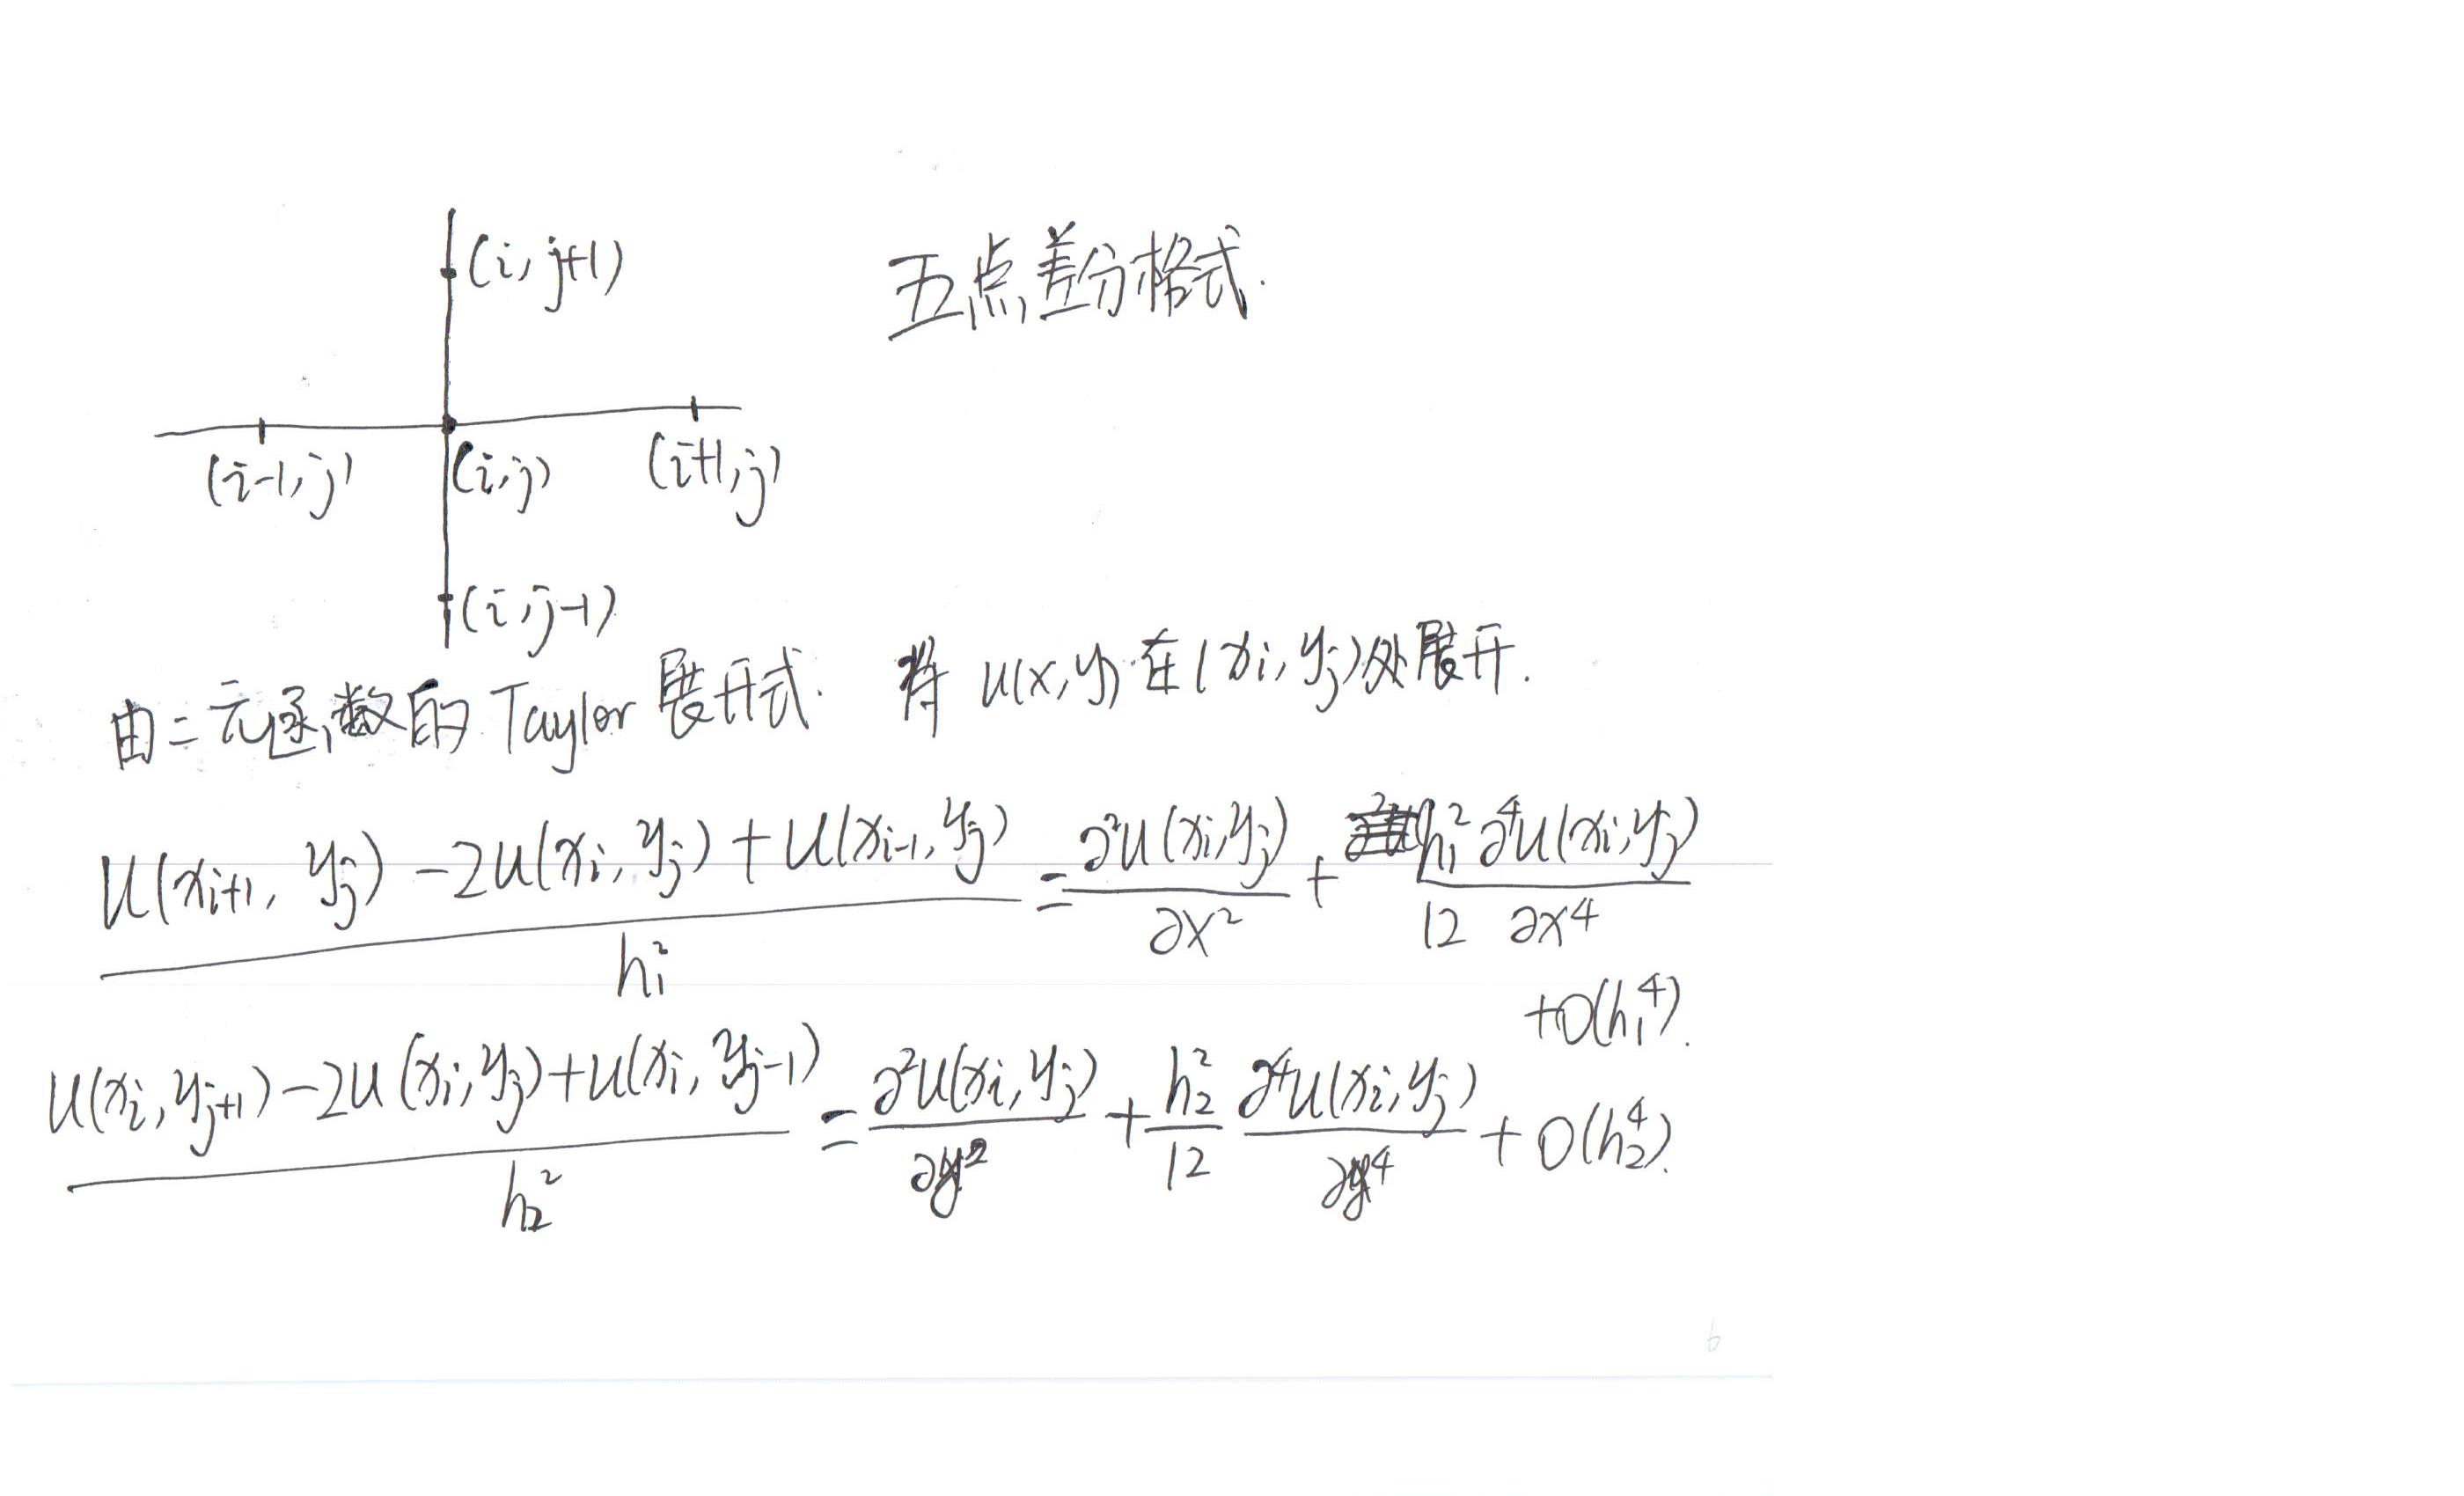 (i, j+1)
五点差分格式.
(i-1, j)
(i, j)
(i+1, j)
(i, j-1)
由二元函数的 Taylor 展开式. 将 u(x, y) 在 (xᵢ, yⱼ) 处展开.
(u(xᵢ₊₁, yⱼ) - 2u(xᵢ, yⱼ) + u(xᵢ₋₁, yⱼ)) / h₁² = ∂²u(xᵢ, yⱼ) / ∂x² + h₁² ∂⁴u(xᵢ, yⱼ) / 12 ∂x⁴
+ O(h₁⁴).
(u(xᵢ, yⱼ₊₁) - 2u(xᵢ, yⱼ) + u(xᵢ, yⱼ₋₁)) / h₂² = ∂²u(xᵢ, yⱼ) / ∂y² + h₂² / 12 ∂⁴u(xᵢ, yⱼ) / ∂y⁴ + O(h₂⁴).